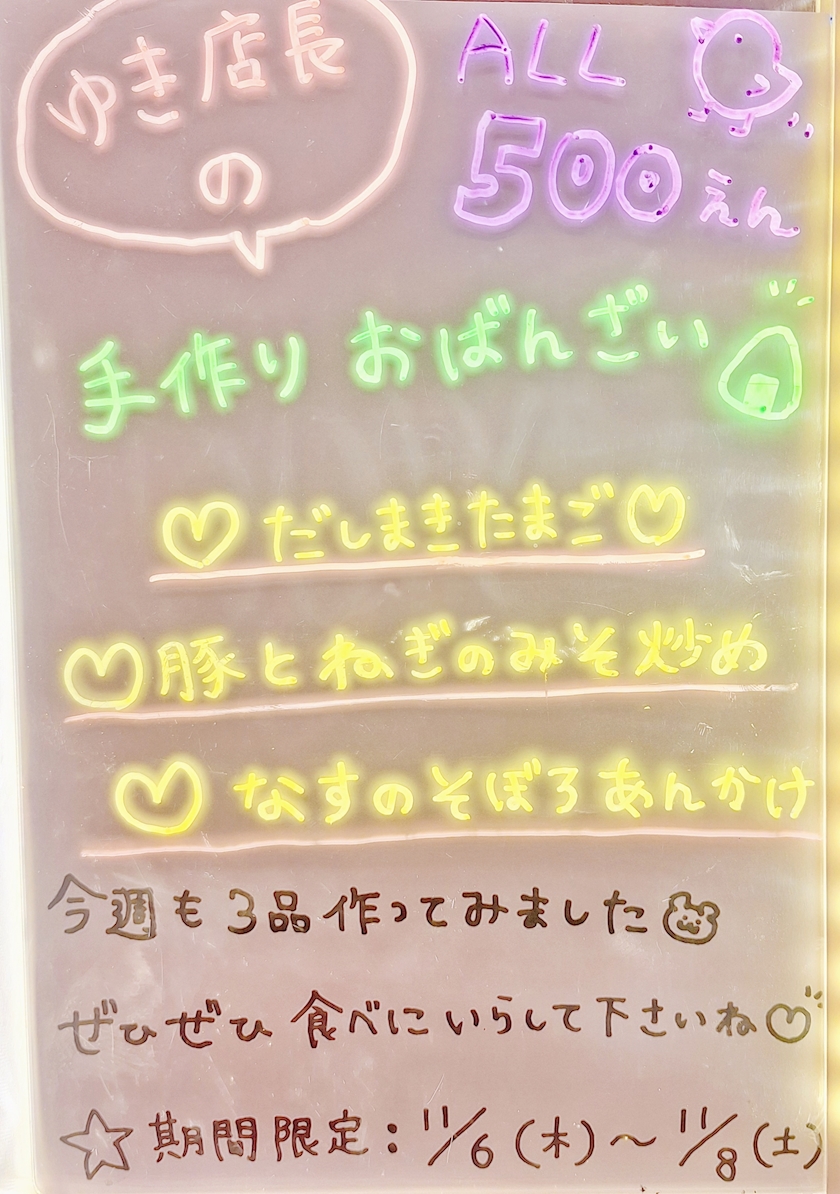 ゆき店長
の
ALL
500えん
手作り おばんざい
♡だしまきたまご♡
♡豚とねぎのみそ炒め
♡なすのそぼろあんかけ
今週も3品作ってみました
ぜひぜひ 食べにいらして下さいね♡
☆期間限定：11/6（木）〜11/8（土）